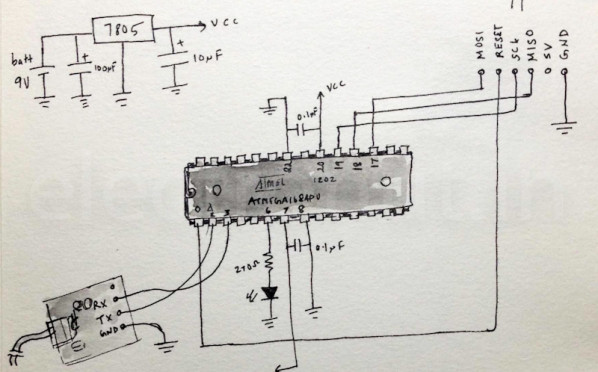 7805
VCC
batt
9V
100µF
10µF
MOSI
RESET
SCK
MISO
5V
GND
VCC
0.1µF
22
20
19
18
17
Atmel
1202
2
3
6
7
8
0.1µF
270Ω
RX
TX
GND